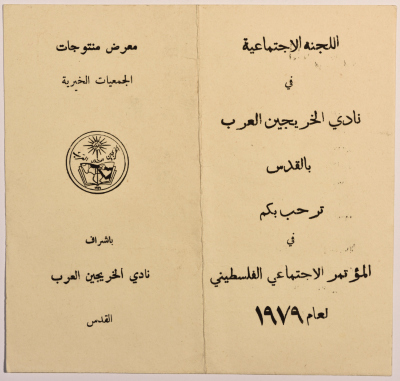 اللجنه الاجتماعية
في
نادي الخريجين العرب
بالقدس
ترحب بكم
في
المؤتمر الاجتماعي الفلسطيني
لعام ١٩٧٩
معرض منتوجات
الجمعيات الخيرية
باشراف
نادي الخريجين العرب
القدس